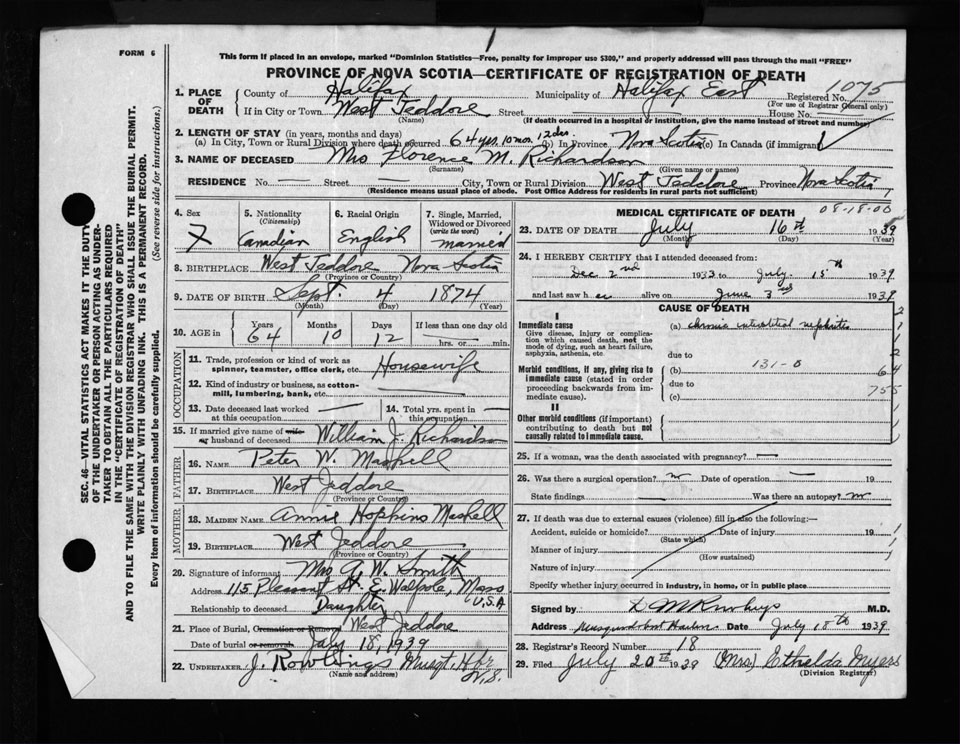 FORM 6
This form if placed in an envelope, marked "Dominion Statistics—Free, penalty for improper use $300," and properly addressed will pass through the mail "FREE"
PROVINCE OF NOVA SCOTIA—CERTIFICATE OF REGISTRATION OF DEATH
1. PLACE OF DEATH
County of Halifax Municipality of Halifax East Registered No. 1075
(For use of Registrar General only)
If in City or Town West Jeddore Street House No.
(Name) (If death occurred in a hospital or institution, give the name instead of street and number)
2. LENGTH OF STAY (in years, months and days)
(a) In City, Town or Rural Division where death occurred 64 yrs. 10 mos. 12 des. (b) In Province Nova Scotia (c) In Canada (if immigrant)
3. NAME OF DECEASED Mrs Florence M. Richardson
(Surname) (Given name or names)
RESIDENCE No. Street — City, Town or Rural Division West Jeddore Province Nova Scotia
(Residence means usual place of abode. Post Office Address for residents in rural parts not sufficient)
4. Sex
F
5. Nationality
(Citizenship)
Canadian
6. Racial Origin
English
7. Single, Married, Widowed or Divorced
(write the word)
married
8. BIRTHPLACE West Jeddore Nova Scotia
(Province or Country)
9. DATE OF BIRTH Sept. 4 1874
(Month) (Day) (Year)
10. AGE in
Years Months Days If less than one day old
64 10 12 hrs. or min.
OCCUPATION
11. Trade, profession or kind of work as
spinner, teamster, office clerk, etc. Housewife
12. Kind of industry or business, as cotton-
mill, lumbering, bank, etc. —
13. Date deceased last worked
at this occupation —
14. Total yrs. spent in
this occupation —
15. If married give name of wife
or husband of deceased William J. Richardson
FATHER
16. NAME Peter W. Maskell
17. BIRTHPLACE West Jeddore
(Province or Country)
MOTHER
18. MAIDEN NAME Annie Hopkins Maskell
19. BIRTHPLACE West Jeddore
(Province or Country)
20. Signature of informant Mrs A. W. Smith
Address 115 Pleasant St. E. Walpole, Mass U.S.A
Relationship to deceased Daughter
21. Place of Burial, Cremation or Removal West Jeddore
Date of burial or removal July 18, 1939
22. UNDERTAKER J. Rowlings Musqt. Hbr N.S.
(Name and address)
MEDICAL CERTIFICATE OF DEATH
08-18-00
23. DATE OF DEATH July 16th 1939
(Month) (Day) (Year)
24. I HEREBY CERTIFY that I attended deceased from:
Dec 2nd 1933 to July 15th 1939
and last saw her alive on June 3rd 1939
CAUSE OF DEATH
I
Immediate cause
Give disease, injury or complica-
tion which caused death, not the
mode of dying, such as heart failure,
asphyxia, asthenia, etc
(a) chronic interstitial nephritis
due to
Morbid conditions, if any, giving rise to
immediate cause (stated in order
proceeding backwards from im-
mediate cause).
(b) 131-0
64
due to
755
(c)
II
Other morbid conditions (if important)
contributing to death but not
causally related to immediate cause.
25. If a woman, was the death associated with pregnancy? —
26. Was there a surgical operation? no Date of operation — 19
State findings — Was there an autopsy? no
27. If death was due to external causes (violence) fill in also the following:—
Accident, suicide or homicide? Date of injury 19
(State which)
Manner of injury
(How sustained)
Nature of injury
Specify whether injury occurred in industry, in home, or in public place
Signed by M.D.
Address Musquodoboit Harbor Date July 18th 1939
28. Registrar's Record Number 18
29. Filed July 20th 1939 (Mrs.) Ethelda Myers
(Division Registrar)
SEC. 46—VITAL STATISTICS ACT MAKES IT THE DUTY
OF THE UNDERTAKER OR PERSON ACTING AS UNDER-
TAKER TO OBTAIN ALL THE PARTICULARS REQUIRED
IN THE "CERTIFICATE OF REGISTRATION OF DEATH"
AND TO FILE THE SAME WITH THE DIVISION REGISTRAR WHO SHALL ISSUE THE BURIAL PERMIT.
WRITE PLAINLY WITH UNFADING INK. THIS IS A PERMANENT RECORD.
Every item of information should be carefully supplied. (See reverse side for instructions.)